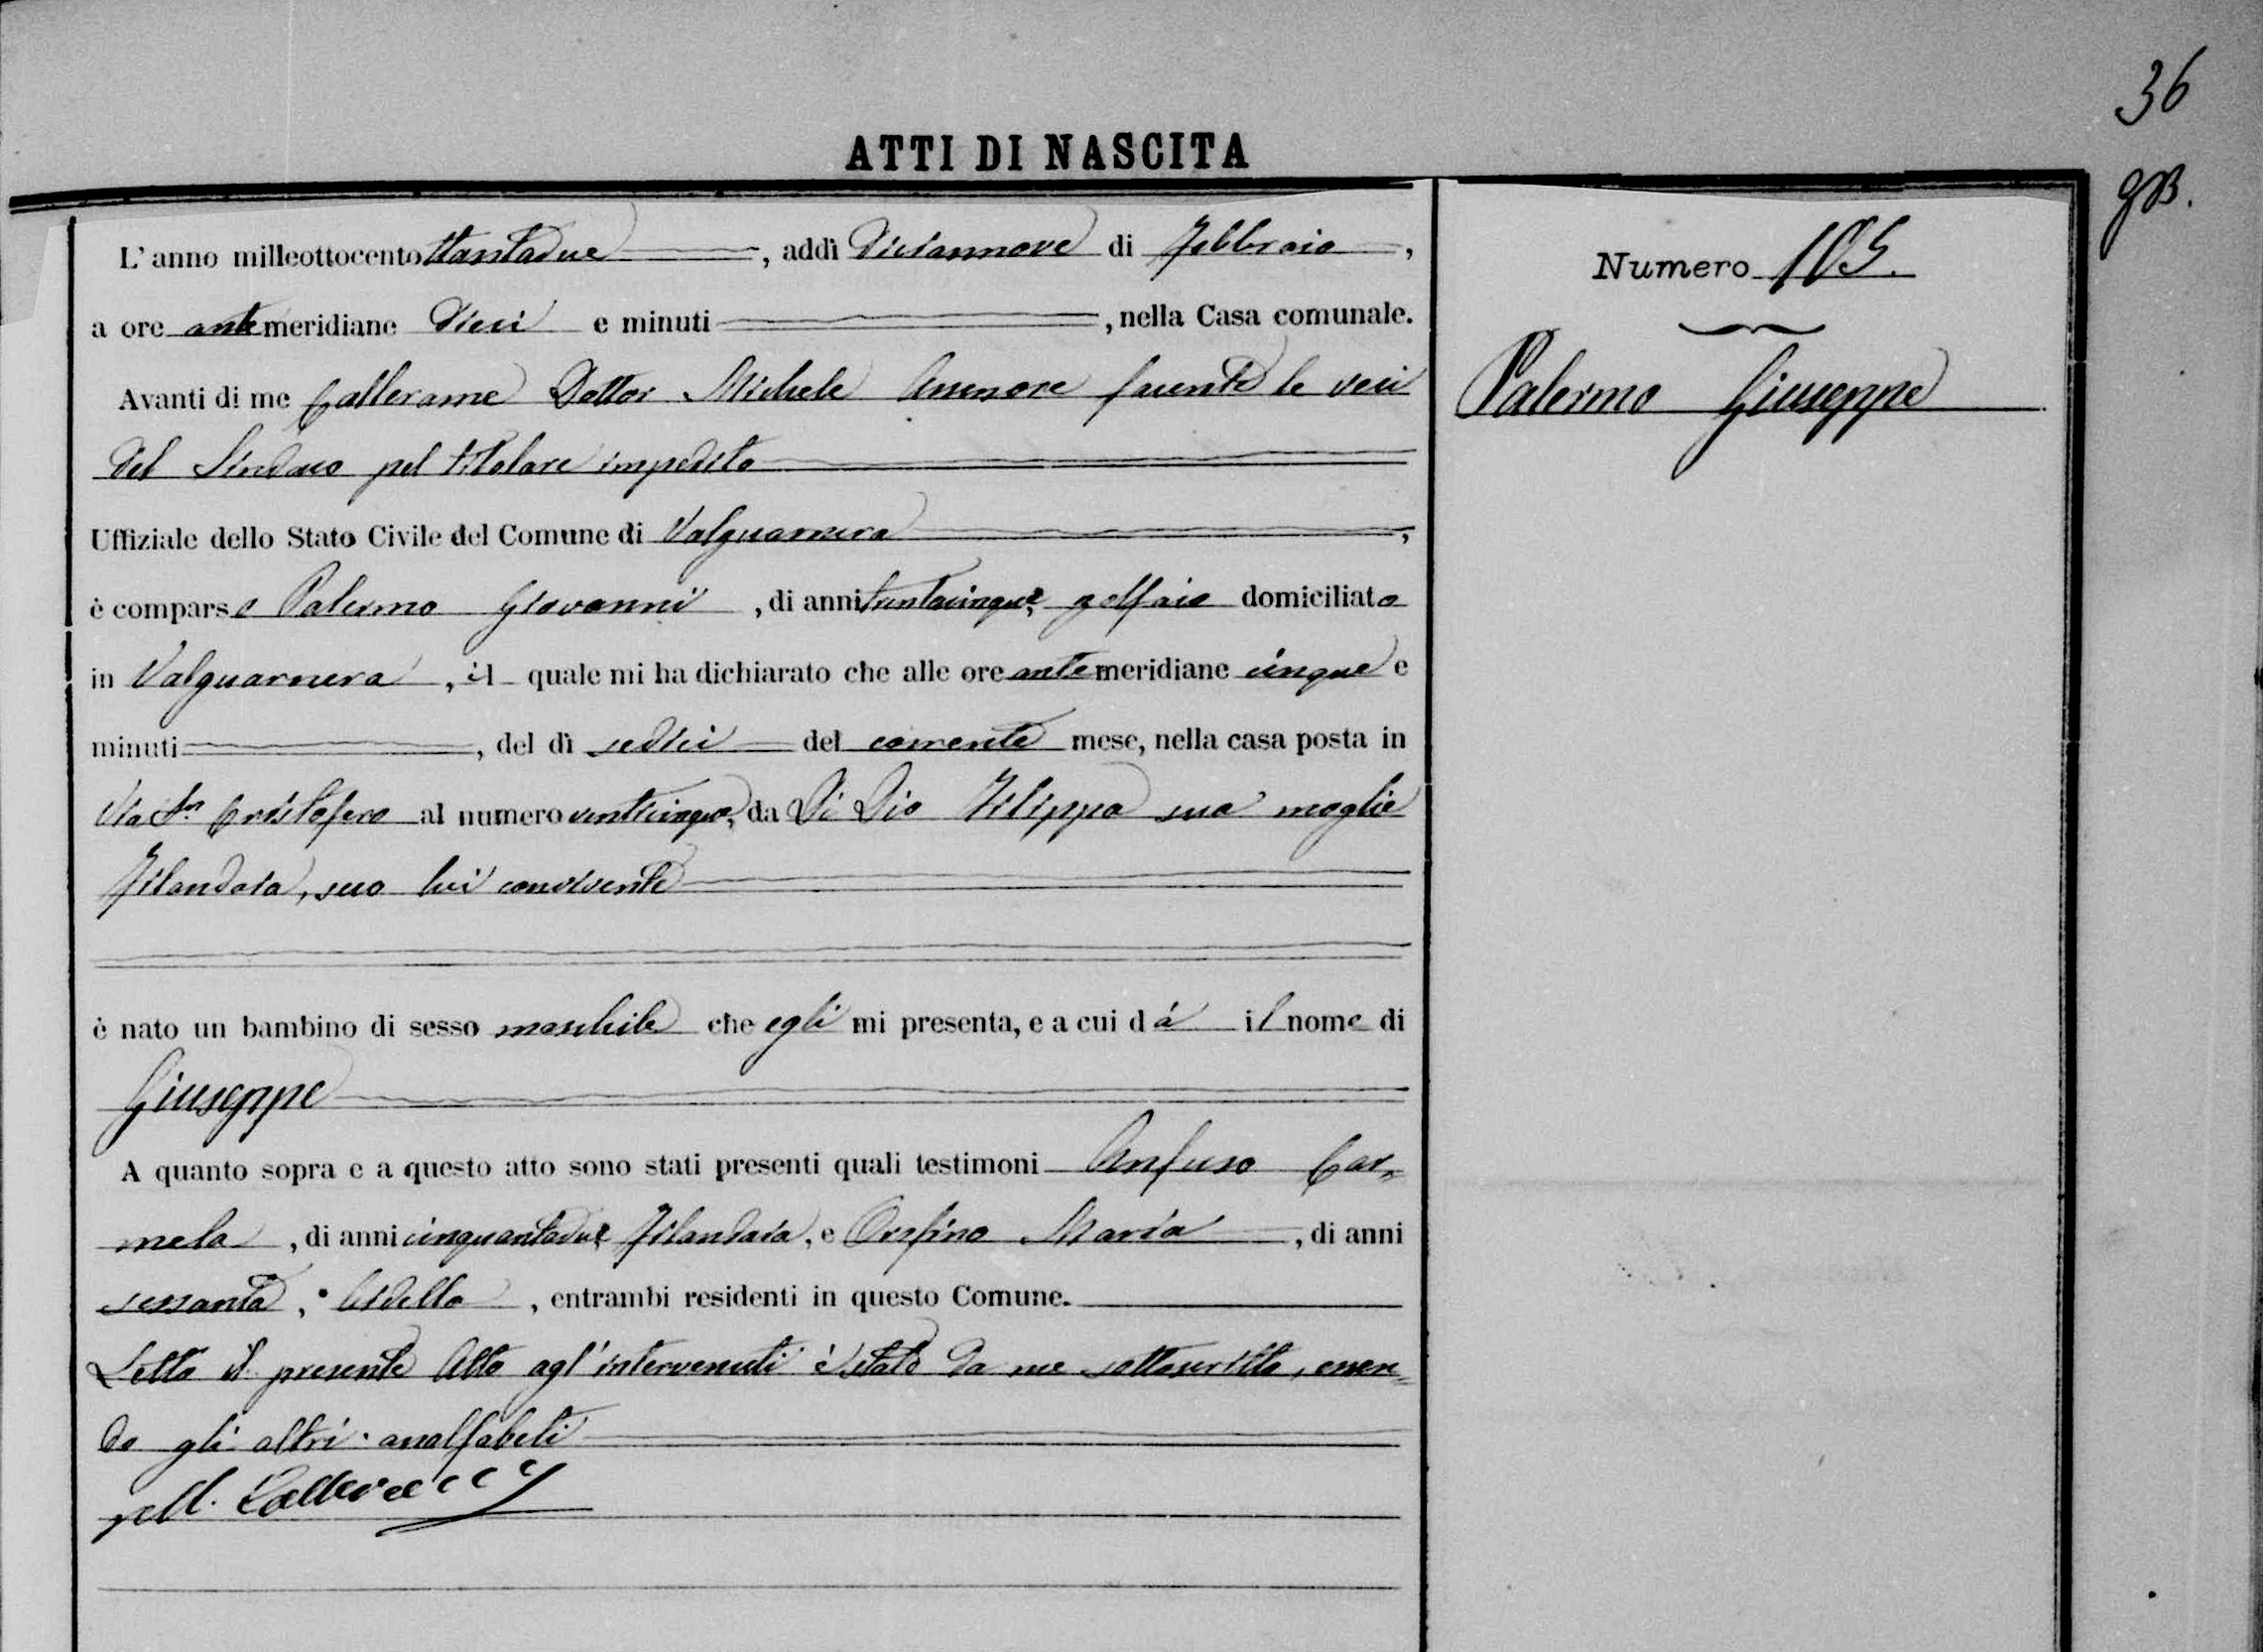 36
ATTI DI NASCITA
gB.
L'anno milleottocentottantadue, addì diciannove di Febbraio,
a ore antemeridiane dieci e minuti, nella Casa comunale.
Avanti di me Callerame Dottor Michele Assessore facente le veci
del Sindaco pel titolare impedito
Uffiziale dello Stato Civile del Comune di Valguarnera,
è comparso Palermo Giovanni, di anni trentacinque, zolfaio domiciliato
in Valguarnera, il quale mi ha dichiarato che alle ore antemeridiane cinque e
minuti, del dì sedici del corrente mese, nella casa posta in
Via Sn Cristofero al numero venticinque, da Di Dio Filippa sua moglie
Filandaia, seco lui convivente
è nato un bambino di sesso maschile che egli mi presenta, e a cui dà il nome di
Giuseppe
A quanto sopra e a questo atto sono stati presenti quali testimoni Anfuso Car-
mela, di anni cinquantadue, Filandaia, e Orofino Maria, di anni
sessanta, Bidella, entrambi residenti in questo Comune.
Letto il presente Atto agl'intervenuti è stato da me sottoscritto, essen-
do gli altri analfabeti
M. Callerame
Numero 105.
Palermo Giuseppe